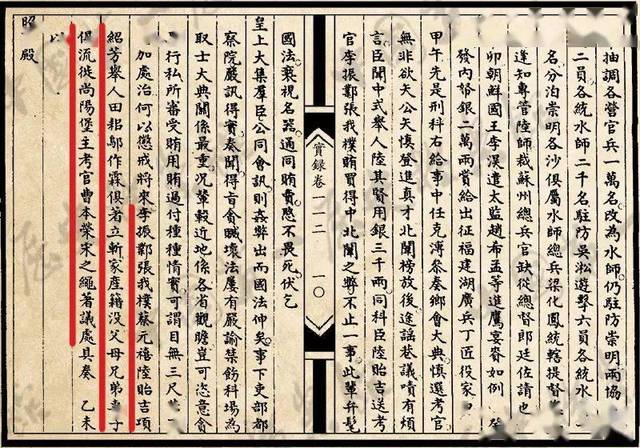 抽調各營官兵一萬名改為水師仍駐防崇明兩協
二員各統水師二千名駐防吳淞遊擊六員各統
名分泊崇明各沙俱屬水師總兵梁化鳳統轄提督
逢知專管陸師裁蘇州總兵官缺從總督郎廷佐請也
卯朝鮮國王李淏遣太監趙希孟等進鷹宴賚如例
發內帑銀二萬兩賞給出征福建湖廣兵丁匠役家口
甲午先是刑科右給事中任克溥參奏鄉會大典慎選考官
無非欲天公矢慎登進真才北闈榜放後途謠巷議嘖有煩
言臣聞中式舉人陸其賢用銀三千兩同科臣陸貽吉送考
官李振鄴張我樸賄買得中北闈之弊不止一事此輩弁髦
實錄卷一一二 一〇
國法褻視名器通同賄賣愍不畏死伏乞
皇上大集羣臣公同會訊則奸弊出而國法伸矣事下吏部都
察院嚴訊得實奏聞得旨貪贓壞法屢有嚴諭禁飭科場為
取士大典關係最重況輦轂近地係各省觀瞻豈可恣意貪
行私所審受賄用賄過付種種情實可謂目無三尺
加處治何以懲戒將來李振鄴張我樸蔡元禧陸貽吉項
紹芳舉人田耜鄔作霖俱著立斬家產籍沒父母兄弟妻子
俱流徙尚陽堡主考官曹本榮宋之繩著議處具奏 乙未
以
昭
殿